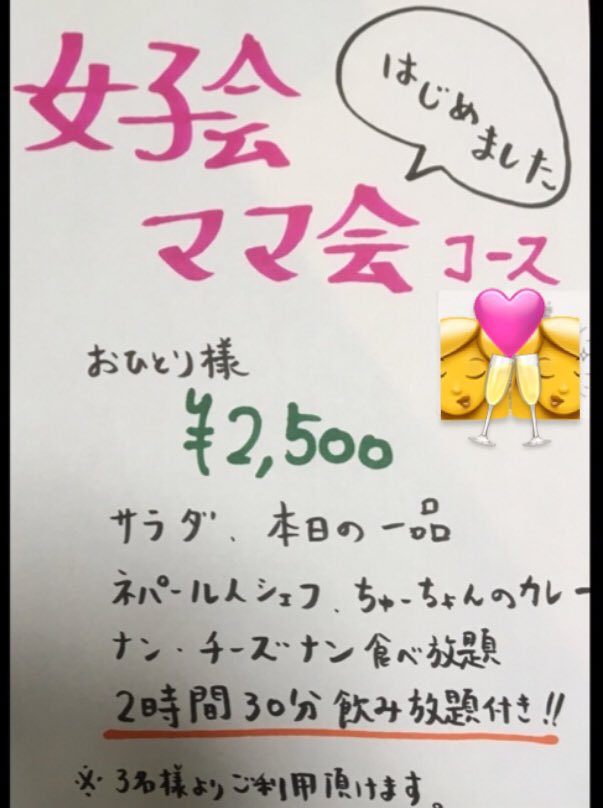 女子会
はじめました
ママ会コース
おひとり様
¥2,500
サラダ、本日の一品
ネパール人シェフ、ちゅーちょんのカレー
ナン・チーズナン食べ放題
2時間30分飲み放題付き!!
※3名様よりご利用頂けます。